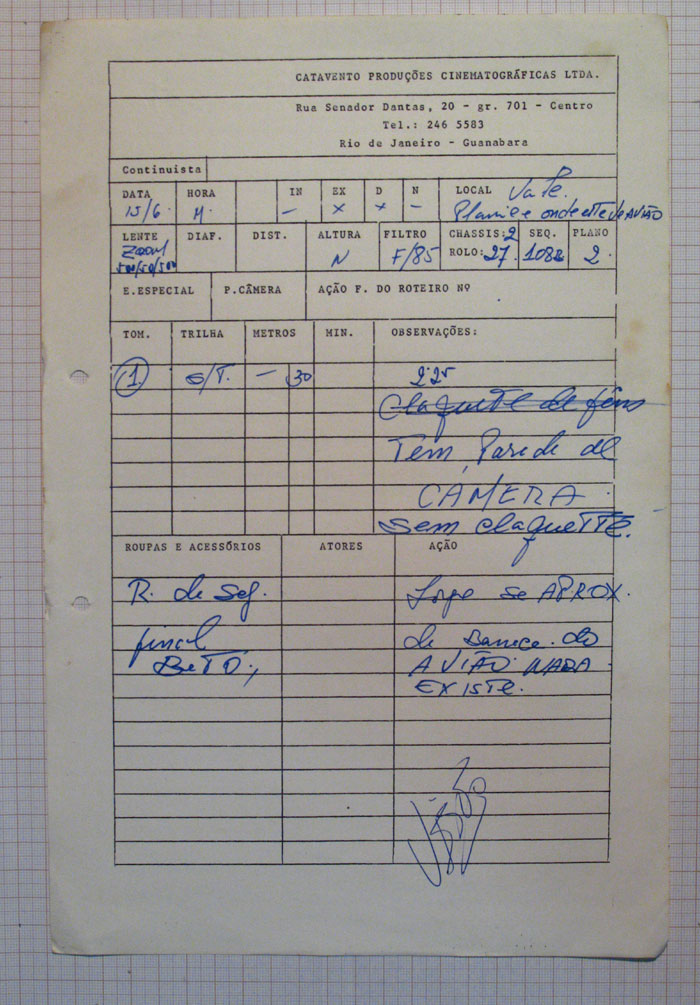 CATAVENTO PRODUÇÕES CINEMATOGRÁFICAS LTDA.
Rua Senador Dantas, 20 - gr. 701 - Centro
Tel.: 246 5583
Rio de Janeiro - Guanabara
Continuista
DATA HORA IN EX D N LOCAL Vale.
15/6 M. — x x — onde AVIÃO
LENTE DIAF. DIST. ALTURA FILTRO CHASSIS: 2 SEQ. PLANO
ZOOM N F/85 ROLO: 27. 108 2.
E.ESPECIAL P.CÂMERA AÇÃO F. DO ROTEIRO Nº
TOM. TRILHA METROS MIN. OBSERVAÇÕES:
1 S/T. — 30 2:25
Claquette de
Tem Parede de
CÂMERA.
Sem claquette.
ROUPAS E ACESSÓRIOS ATORES AÇÃO
R. de Seq. Jorge se APROX.
final de do
BETO, AVIÃO NADA
EXISTE.